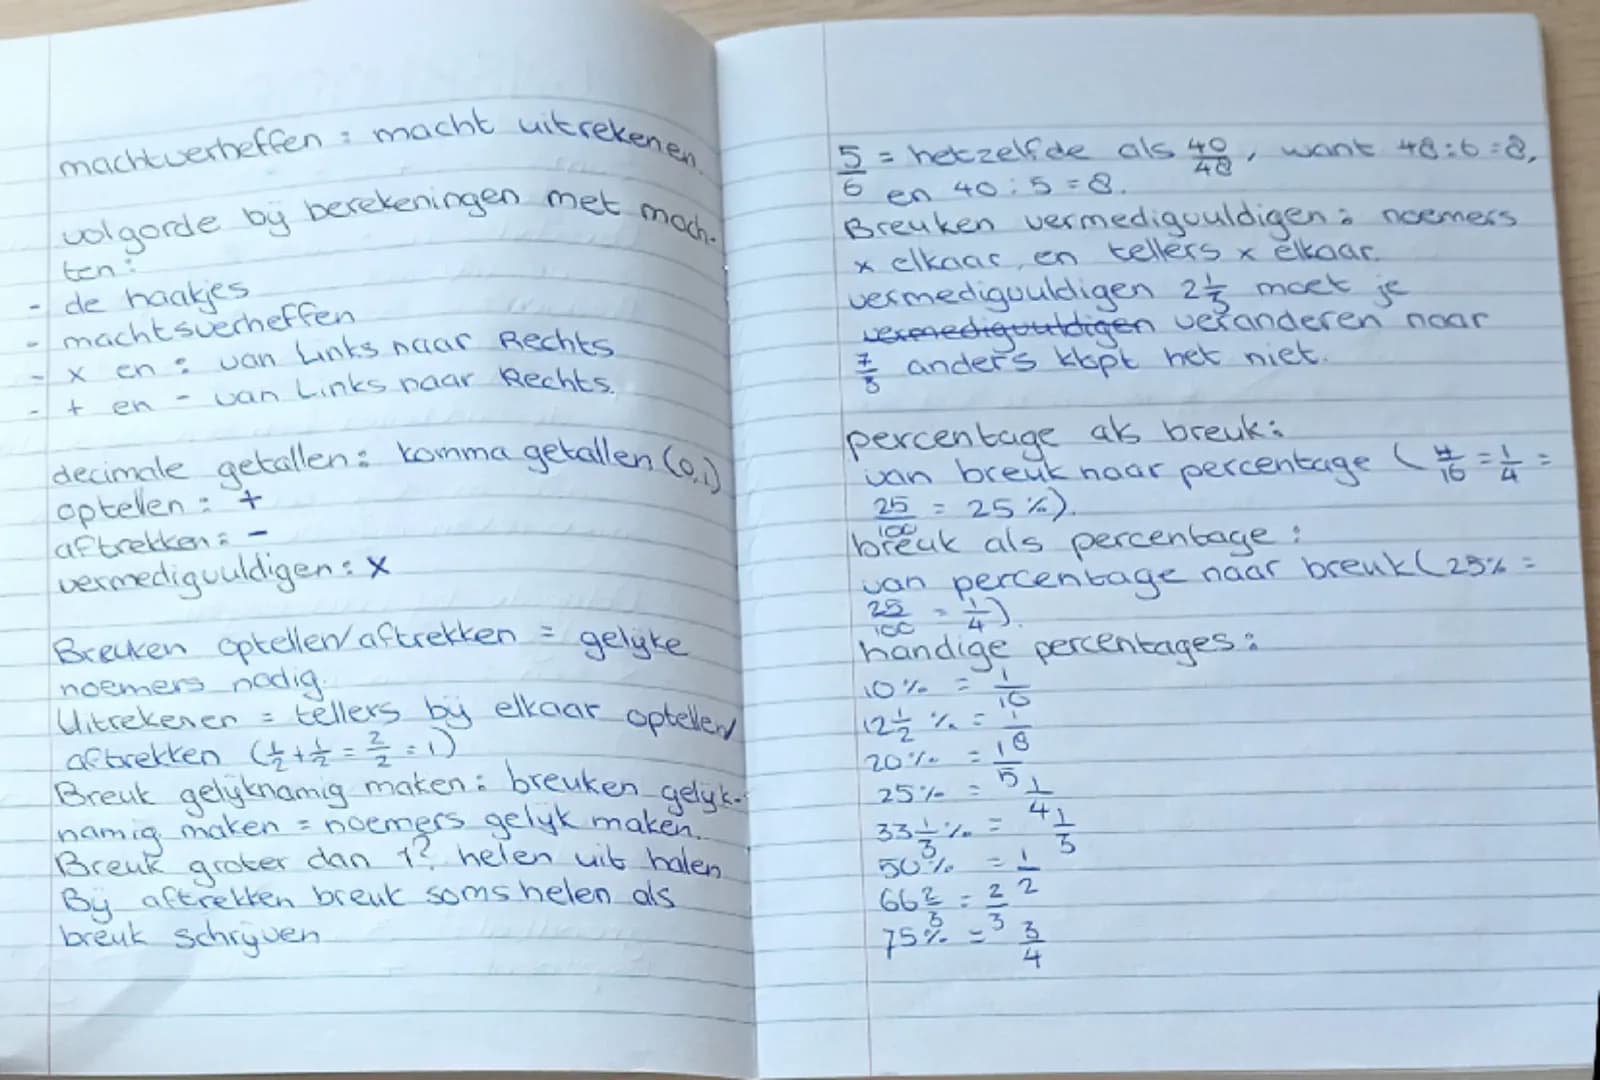 machtverheffen : macht uitrekenen.
volgorde bij berekeningen met mach-
ten:
- de haakjes
- machtsverheffen
- x en : van Links naar Rechts
- + en - van Links naar Rechts.
decimale getallen: komma getallen (0,1)
optellen : +
aftrekken: -
vermedigvuldigen: x
Breuken optellen/aftrekken = gelijke
noemers nodig.
Uitrekenen = tellers bij elkaar optellen/
aftrekken (1/2 + 1/2 = 2/2 = 1)
Breuk gelijknamig maken: breuken gelijk-
namig maken = noemers gelijk maken.
Breuk groter dan 1? helen uit halen
Bij aftrekken breuk soms helen als
breuk schrijven
5/6 = hetzelfde als 40/48, want 48:6=8,
en 40:5=8.
Breuken vermedigvuldigen: noemers
x elkaar en tellers x elkaar.
vermedigvuldigen 2 1/3 moet je
vermedigvuldigen veranderen naar
7/3 anders klopt het niet.
percentage als breuk:
van breuk naar percentage (4/16 = 1/4 =
25/100 = 25%).
breuk als percentage:
van percentage naar breuk (25% =
25/100 = 1/4).
handige percentages:
10% = 1/10
12 1/2 % = 1/8
20% = 1/5
25% = 1/4
33 1/3 % = 1/3
50% = 1/2
66 2/3 = 2/3
75% = 3/4